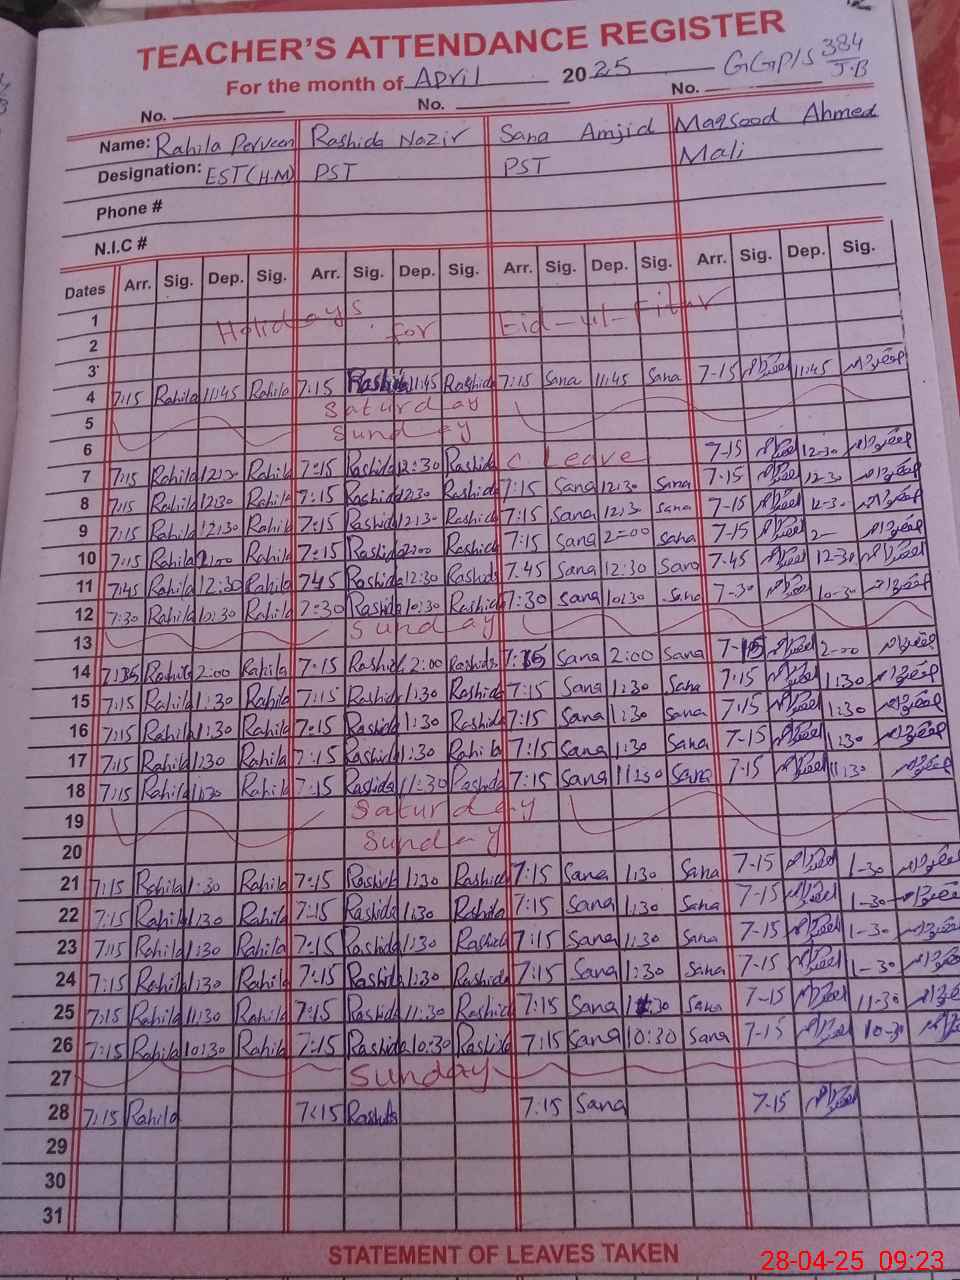 TEACHER'S ATTENDANCE REGISTER
For the month of April 2025 GGP/S 384/J.B
No. No. No.
Name: Rahila Perveen Rashida Nazir Sana Amjid Maqsood Ahmed
Designation: EST(H.M) PST PST Mali
Phone #
N.I.C #
Dates Arr. Sig. Dep. Sig. Arr. Sig. Dep. Sig. Arr. Sig. Dep. Sig. Arr. Sig. Dep. Sig.
1 Holidays for Eid-ul-Fitar
2
3
4 7:15 Rahila 11:45 Rahila 7:15 Rashida 11:45 Rashida 7:15 Sana 11:45 Sana 7-15 11:45
5 Saturday
6 Sunday
7 7:15 Rahila 12:30 Rahila 7:15 Rashida 12:30 Rashida C. Leave 7-15 12-30
8 7:15 Rahila 12:30 Rahila 7:15 Rashida 12:30 Rashida 7:15 Sana 12:30 Sana 7-15 12-30
9 7:15 Rahila 12:30 Rahila 7:15 Rashida 12:30 Rashida 7:15 Sana 12:30 Sana 7-15 12-30
10 7:15 Rahila 2:00 Rahila 7:15 Rashida 2:00 Rashida 7:15 Sana 2:00 Sana 7-15 2-
11 7:45 Rahila 12:30 Rahila 7:45 Rashida 12:30 Rashida 7.45 Sana 12:30 Sana 7-45 12-30
12 7:30 Rahila 10:30 Rahila 7:30 Rashida 10:30 Rashida 7:30 Sana 10:30 Sana 7-30 10-30
13 Sunday
14 7:15 Rahila 2:00 Rahila 7:15 Rashida 2:00 Rashida 7:15 Sana 2:00 Sana 7-15 2-00
15 7:15 Rahila 1:30 Rahila 7:15 Rashida 1:30 Rashida 7:15 Sana 1:30 Sana 7-15 1:30
16 7:15 Rahila 1:30 Rahila 7:15 Rashida 1:30 Rashida 7:15 Sana 1:30 Sana 7-15 1:30
17 7:15 Rahila 1:30 Rahila 7:15 Rashida 1:30 Rahila 7:15 Sana 1:30 Sana 7-15 1:30
18 7:15 Rahila 11:30 Rahila 7:15 Rashida 11:30 Rashida 7:15 Sana 11:30 Sana 7-15 11:30
19 Saturday
20 Sunday
21 7:15 Rahila 1:30 Rahila 7:15 Rashida 1:30 Rashida 7:15 Sana 1:30 Sana 7-15 1-30
22 7:15 Rahila 1:30 Rahila 7:15 Rashida 1:30 Rashida 7:15 Sana 1:30 Sana 7-15 1-30
23 7:15 Rahila 1:30 Rahila 7:15 Rashida 1:30 Rashida 7:15 Sana 1:30 Sana 7-15 1-30
24 7:15 Rahila 1:30 Rahila 7:15 Rashida 1:30 Rashida 7:15 Sana 1:30 Sana 7-15 1-30
25 7:15 Rahila 11:30 Rahila 7:15 Rashida 11:30 Rashida 7:15 Sana 11:30 Sana 7-15 11-30
26 7:15 Rahila 10:30 Rahila 7:15 Rashida 10:30 Rashida 7:15 Sana 10:30 Sana 7-15 10-30
27 Sunday
28 7:15 Rahila 7:15 Rashida 7:15 Sana 7-15
29
30
31
STATEMENT OF LEAVES TAKEN
28-04-25 09:23